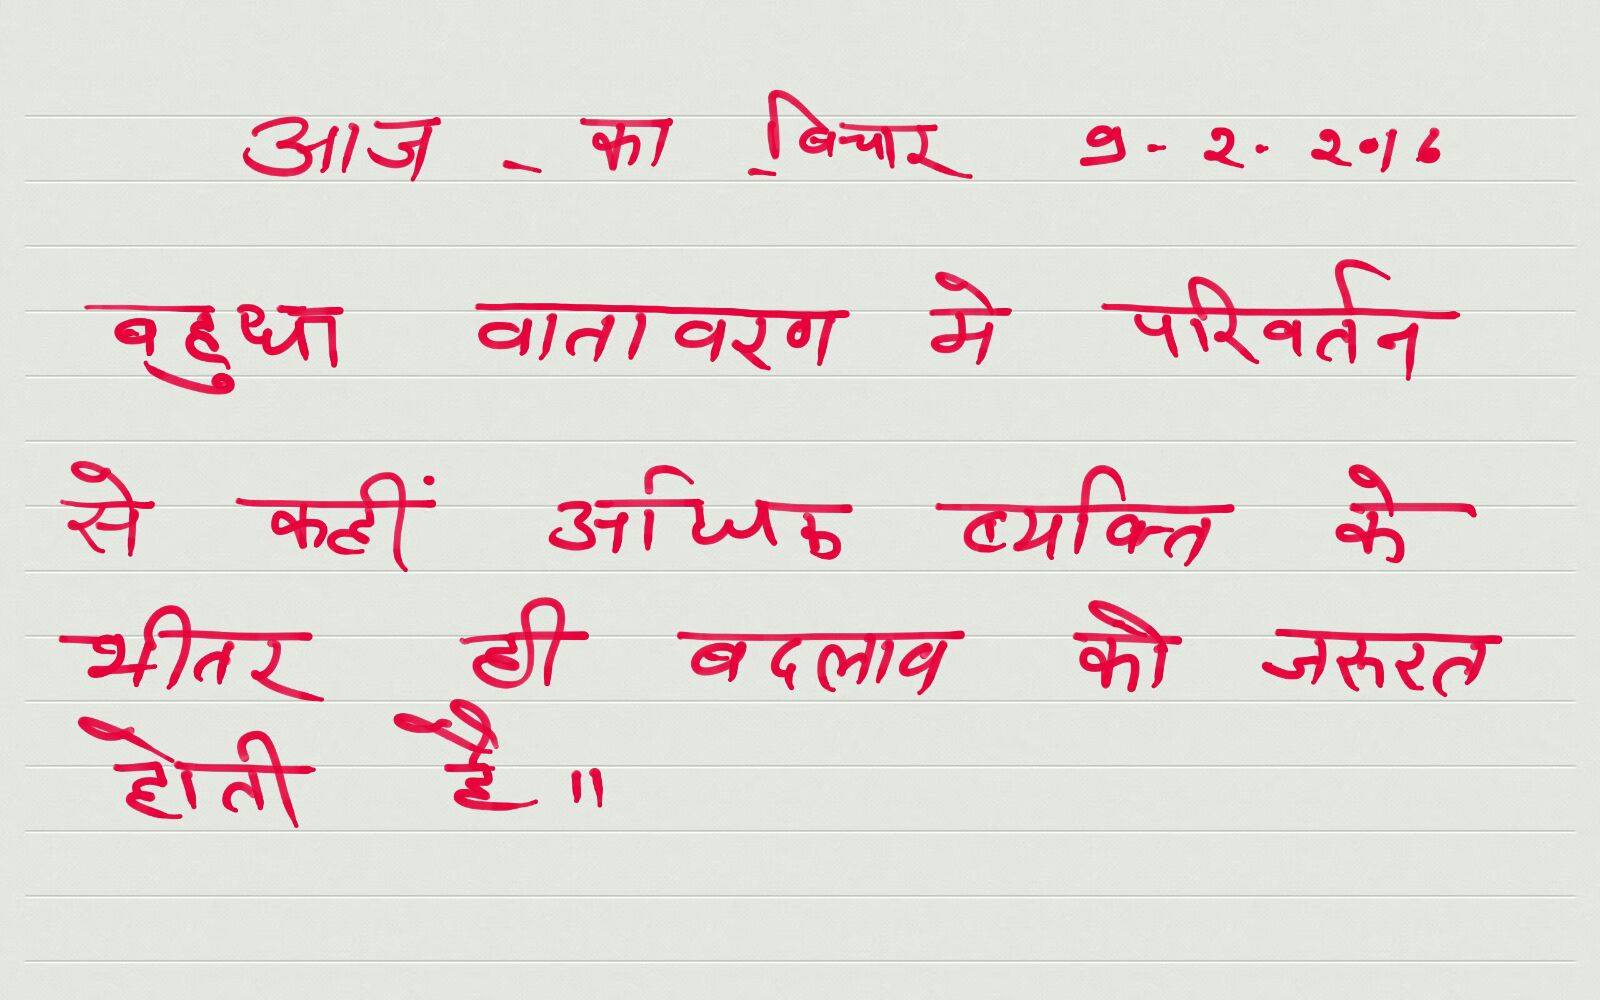 आज - का - बिचार 9 - 2 - 2016
बहुधा वातावरण मे परिवर्तन
से कहीं अधिक व्यक्ति के
भीतर ही बदलाव को जरूरत
होती है ॥